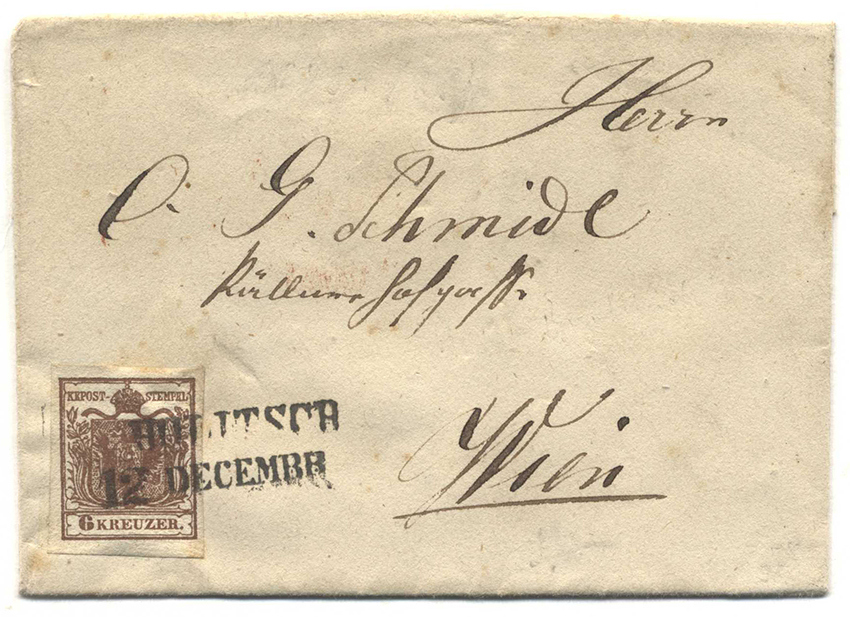 Herrn
C. G. Schmidl
Wien
KKPOST-STEMPEL
6 KREUZER.
HOLITSCH
12 DECEMBR